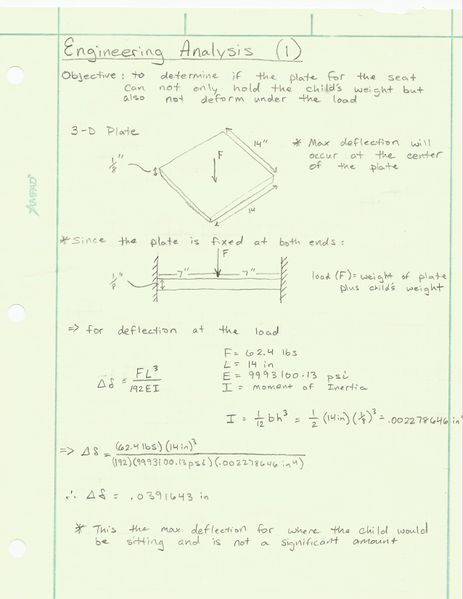 Engineering Analysis (1)
Objective: to determine if the plate for the seat
can not only hold the child's weight but
also not deform under the load
3-D Plate
14"
1/8"
F
* Max deflection will
occur at the center
of the plate
14
AMPAD
* Since the plate is fixed at both ends:
F
7" 7"
1/8"
load (F) = weight of plate
plus child's weight
=> for deflection at the load
Δδ = FL³/192EI
F = 62.4 lbs
L = 14 in
E = 9993100.13 psi
I = moment of Inertia
I = 1/12 bh³ = 1/2 (14in)(1/8)³ = .002278646 in⁴
=> Δδ = (62.4 lbs)(14 in)³/(192)(9993100.13psi)(.002278646 in⁴)
∴ Δδ = .0391643 in
* This the max deflection for where the child would
be sitting and is not a significant amount